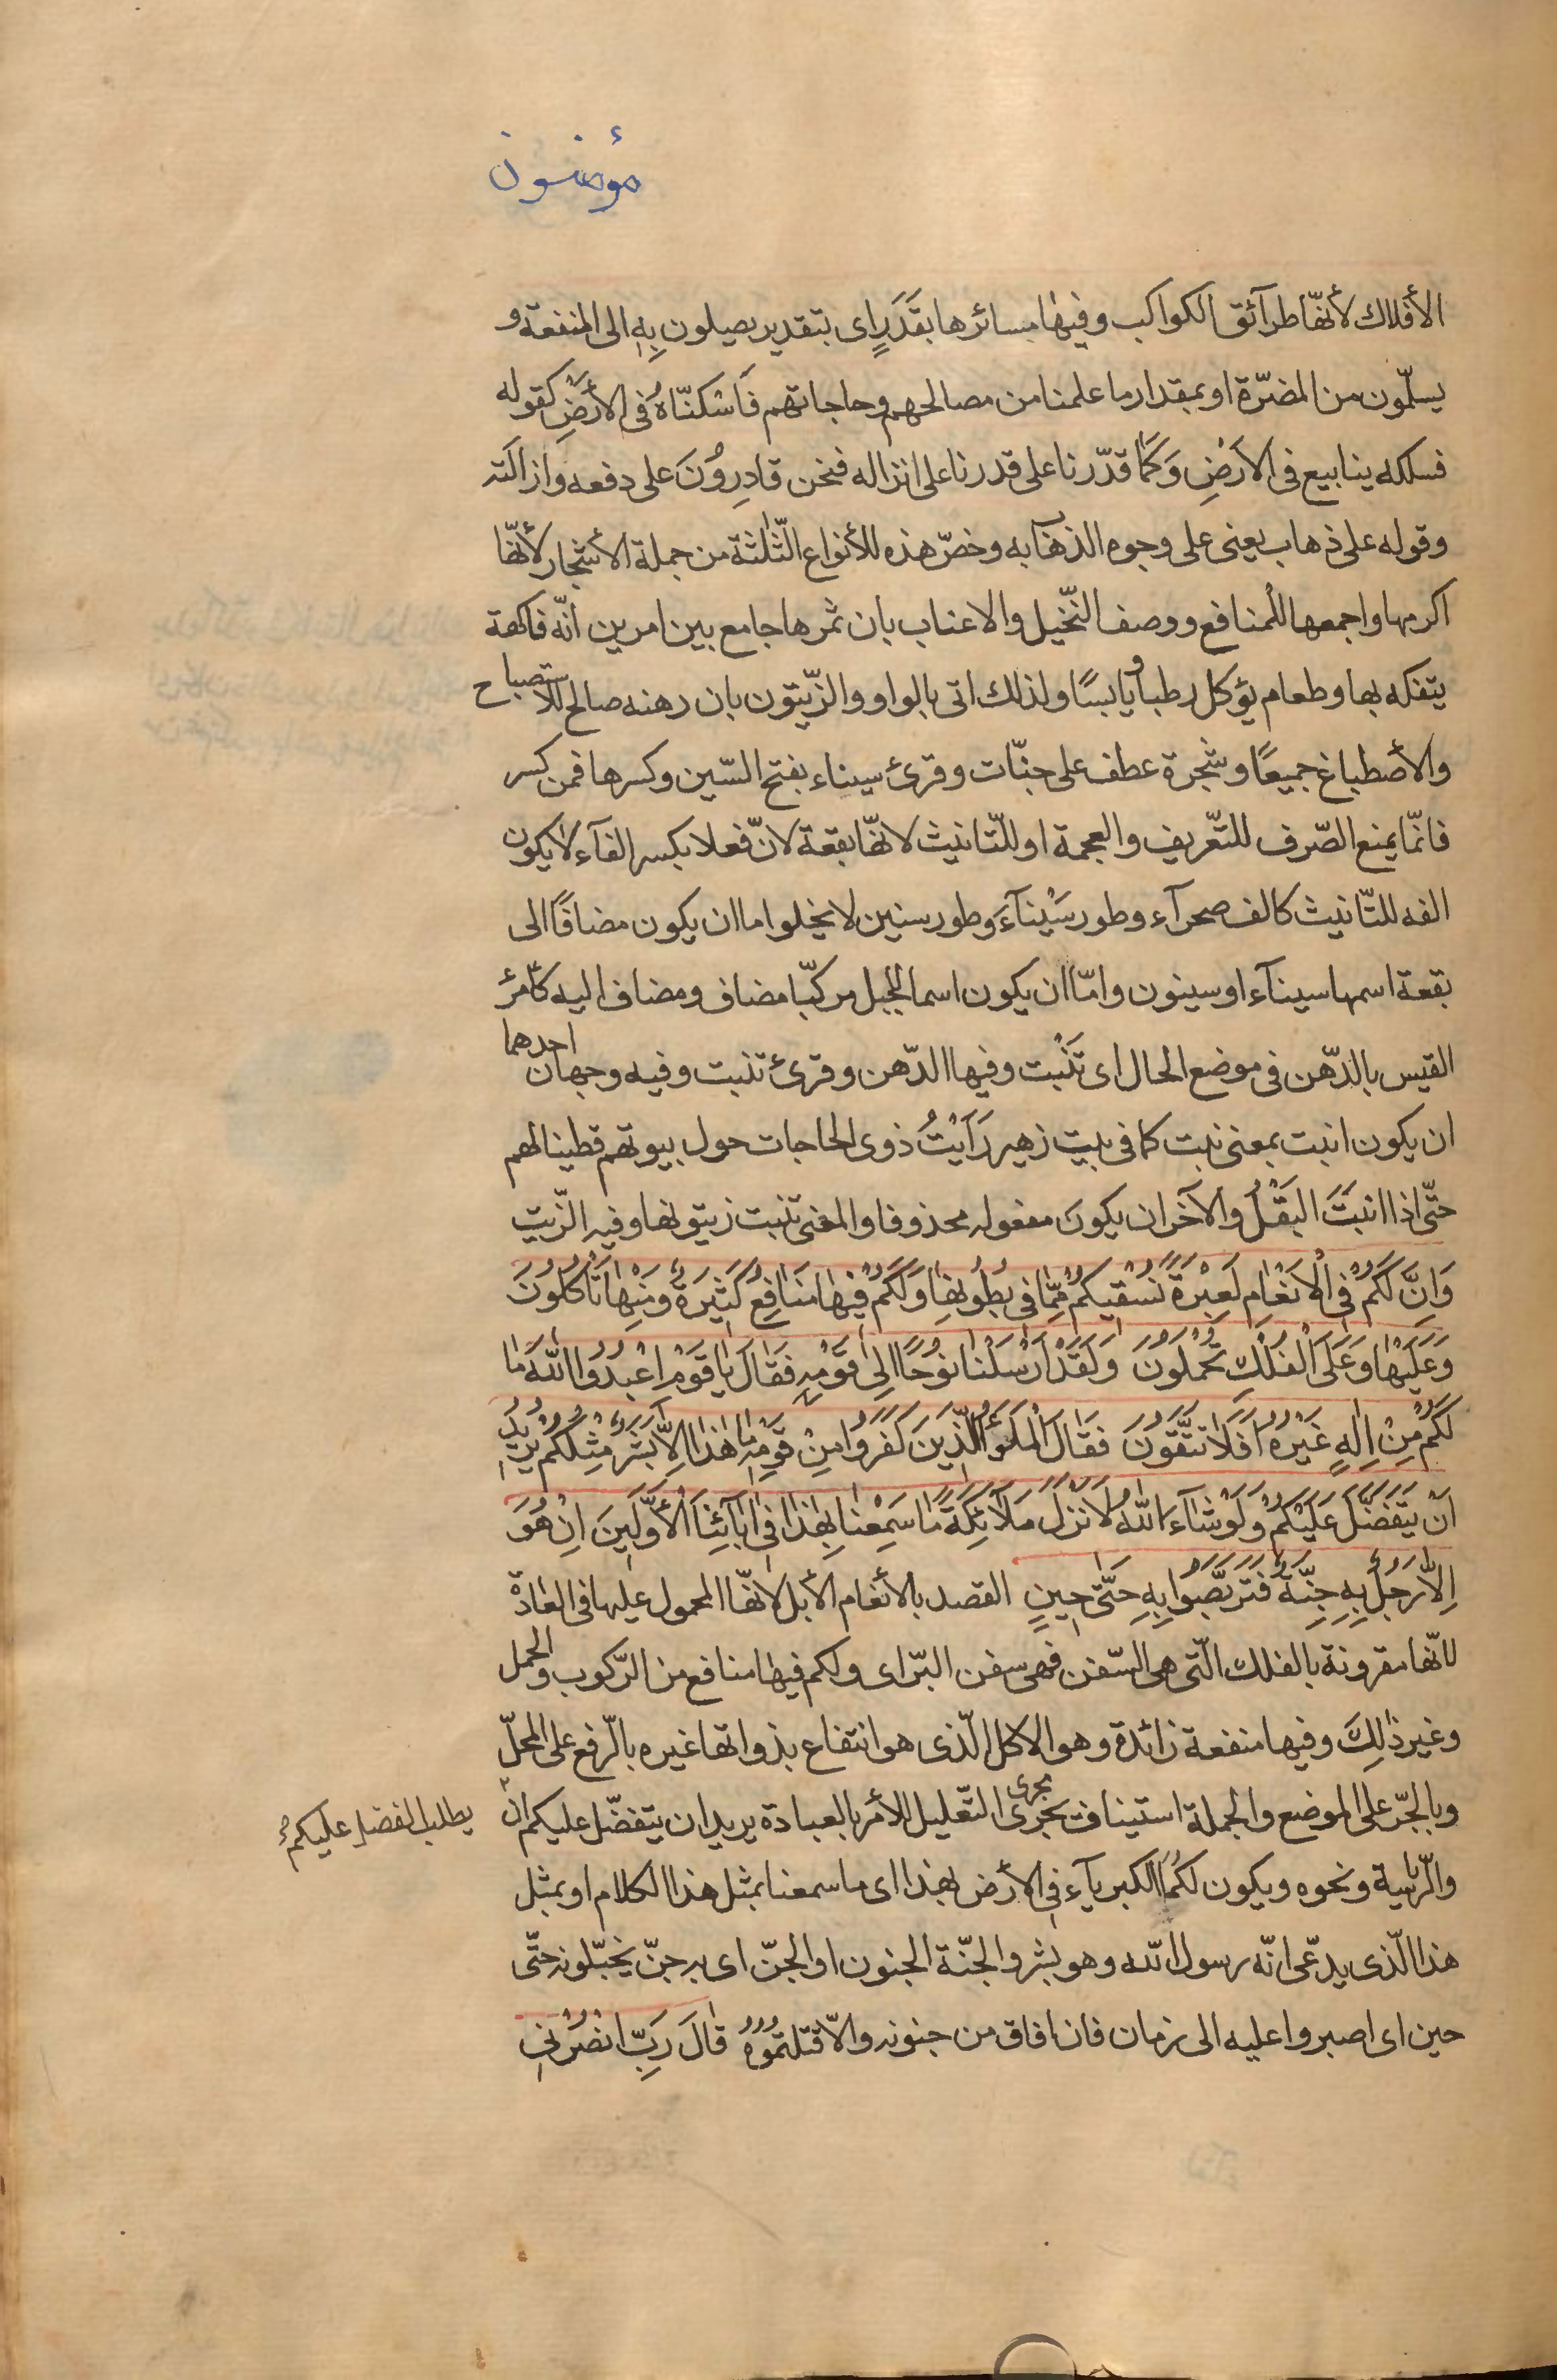 مؤمنون
الأفلاك لأنّها طرآئق الكواكب وفيها مسائرها بقَدَرٍ اى بتقدير يصيلون بِهِ الى المنفعة و
يسلّمون من المضرّة او بمقدار ما علمنا من مصالحهم وحاجاتهم فَاَسْكنّاهُ فى الأَرْضِ كقوله
فسلكه ينابيع فى الاَرْضِ وَكَمٰا قدّرنا على قدرنا على انزاله فنحن قادِرُونَ على دفعه وازالته
وقوله على ذهاب يعنى على وجوه الذهاب به وخصّ هذه للأنواع الثّلثة من جملة الأشجار لأنّها
اكرمها واجمعها للمنافع ووصف النّخيل والاعناب بان ثمرها جامع بين امرين انّه فاكهة
يتفكه بها وطعام يؤكل رطبا ويابسًا ولذلك اتى بالواو والزّيتون بان دهنه صالح للأستصباح
والأصطباغ جميعًا وشجرة عطف على جنّات وقرئ سيناء بفتح السّين وكسرها فمن كسر
فانّما يمنع الصّرف للتّعريف والعجمة او للتّانيث لانّها بقعة لانّ فعلا بكسر الفآء لا يكون
الفه للتّانيث كالف صحرآء وطور سَيْنآءَ وطور سنين لا يخلوا ما ان يكون مضافًا الى
بقعة اسمها سيناۤء او سينون وامّا ان يكون اسما للجبل مركبّا مضاف ومضاف اليه كامرئ
القيس بالدّهن فى موضع الحال اى تَنْبت وفيها الدّهن وقرئ تنبت وفيه وجهان احدهما
ان يكون انبت بمعنى نبت كما فى بيت زهير رَاَيْتُ ذوى الحاجات حول بيوتهم قطينا لهم
حتّى اذا انبَتَ البَقْلُ والآخر ان يكون مفعوله محذوفا والمعنى تنبت زيتونها وفيه الزّيت
وَاِنَّ لَكُمْ فِى الْاَنْعٰامِ لَعِبْرَةً نُسْقيكُمْ مِمّٰا فى بُطُونِهٰا وَلَكُمْ فيهٰا مَنٰافِعُ كَثيرَةٌ وَمِنْهٰا تَاْكُلُونَ
وَعَلَيْهٰا وَعَلَى الْفُلْكِ تُحْمَلُونَ وَلَقَدْ اَرْسَلْنٰا نُوحًا اِلىٰ قَوْمِهِ فَقٰالَ يٰا قَوْمِ اعْبُدُوا اللّٰهَ مٰا
لَكُمْ مِنْ اِلٰهٍ غَيْرُهُ اَفَلاٰ تَتَّقُونَ فَقٰالَ الْمَلَؤُا الَّذينَ كَفَرُوا مِنْ قَوْمِهِ مٰا هٰذٰا اِلّاٰ بَشَرٌ مِثْلُكُمْ يُريدُ
اَنْ يَتَفَضَّلَ عَلَيْكُمْ وَلَوْ شٰآءَ اللّٰهُ لَاَنْزَلَ مَلاٰۤئِكَةً مٰا سَمِعْنٰا بِهٰذٰا فى اٰبٰآئِنَا الْأَوَّلينَ اِنْ هُوَ
اِلّاٰ رَجُلٌ بِهِ جِنَّةٌ فَتَرَبَّصُوا بِهِ حَتّىٰ حينٍ القصد بالأنعام الأبل لانّها المحمول عليها فى العادة
لانّها مقرونة بالفلك الّتى هى السّفن فهى سفن البرّ اى ولكم فيها منافع من الرّكوب والحمل
وغير ذٰلِكَ وفيها منفعة زائدة وهو الاكل الّذى هو انتفاع بذواتها غيره بالرّفع على المحلّ
وبالجرّ على الموضع والجملة استيناف تجرى مجرى التّعليل للأمر بالعبادة يريد ان يتفضّل عليكم ان
يطلب الفضل عليكم
والرّياسة ونحوه ويكون لكُمَا الكبرياۤء فى الأرض بهٰذا اى ما سمعنا بمثل هذا الكلام او بمثل
هذا الّذى يدّعى انّه رسول اللّه وهو بشر والجنّة الجنون او الجنّ اى به جنّ يخبّلونه حتّى
حين اى اصبروا عليه الى زمان فان افاق من جنونه والّا قتلتمُوهُ قٰالَ رَبِّ انْصُرْنى